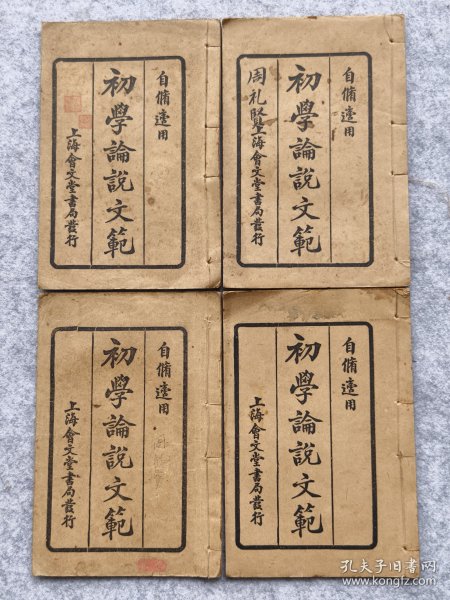 自脩適用
初學論說文範
上海會文堂書局發行
自脩適用
初學論說文範
上海會文堂書局發行
周礼賢
自脩適用
初學論說文範
上海會文堂書局發行
自脩適用
初學論說文範
上海會文堂書局發行
孔夫子旧书网
www.kongfz.com